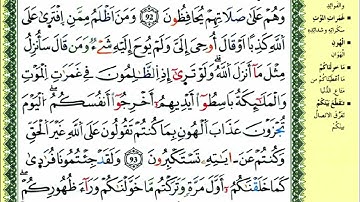 وَهُمْ عَلَىٰ صَلَاتِهِمْ يُحَافِظُونَ 92 وَمَنْ أَظْلَمُ مِمَّنِ اِفْتَرَىٰ عَلَى
اَللَّهِ كَذِبًا أَوْ قَالَ أُوحِيَ إِلَيَّ وَلَمْ يُوحَ إِلَيْهِ شَيْءٌ وَمَن قَالَ سَأُنزِلُ
مِثْلَ مَا أَنزَلَ اَللَّهُ وَلَوْ تَرَىٰ إِذِ اِلظَّٰلِمُونَ فِي غَمَرَٰتِ اِلْمَوْتِ
وَالْمَلَٰئِكَةُ بَاسِطُوا أَيْدِيهِمْ أَخْرِجُوا أَنفُسَكُمُ اُلْيَوْمَ
تُجْزَوْنَ عَذَابَ اَلْهُونِ بِمَا كُنتُمْ تَقُولُونَ عَلَى اَللَّهِ غَيْرَ اَلْحَقِّ
وَكُنتُمْ عَنَ اٰيَٰتِهِ تَسْتَكْبِرُونَ 93 وَلَقَدْ جِئْتُمُونَا فُرَٰدَىٰ
كَمَا خَلَقْنَٰكُمْ أَوَّلَ مَرَّةٍ وَتَرَكْتُم مَّا خَوَّلْنَٰكُمْ وَرَاءَ ظُهُورِكُمْ
والفوائد
غمرات الموت
سكراته وشدائده
الهون
ما خولناكم
تقطع بينكم
تفرق الاتصال
بينكم